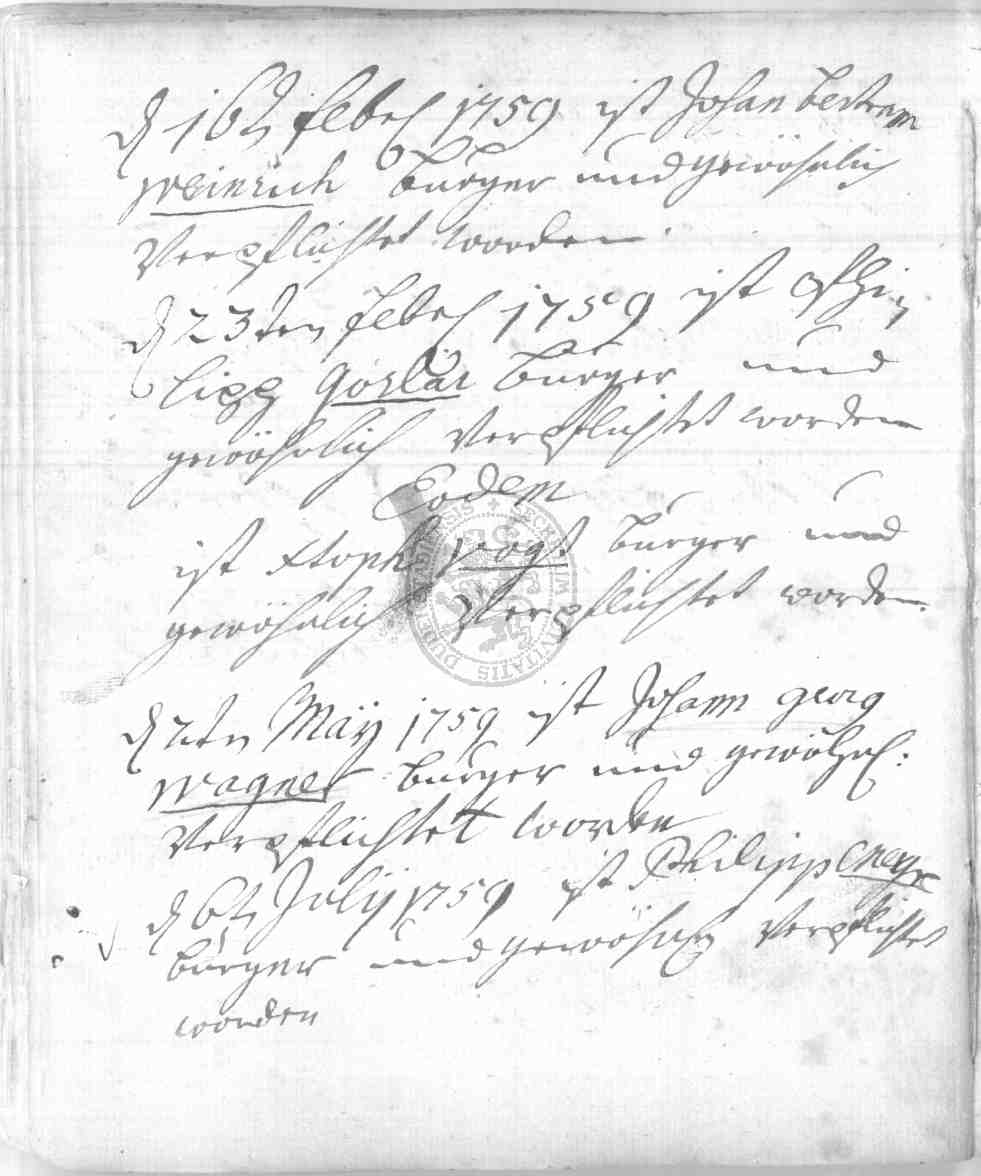 d 16t febr 1759 ist Johan bertram
Weinrich burger und gewöhnlich
Verpflichtet worden.
d 23ten febr 1759 ist Phi-
lipp Goslar burger und
gewöhnlich Verpflichtet worden
Eodem
ist Vogt burger und
gewöhnlich Verpflichtet worden.
d May 1759 ist Johann georg
Wagner burger und gewöhnl:
Verpflichtet worden
d 6t Julÿ 1759 ist Philipp
burger und gewöhnl Verpflichtet
worden
SECRETUM CIVITATIS